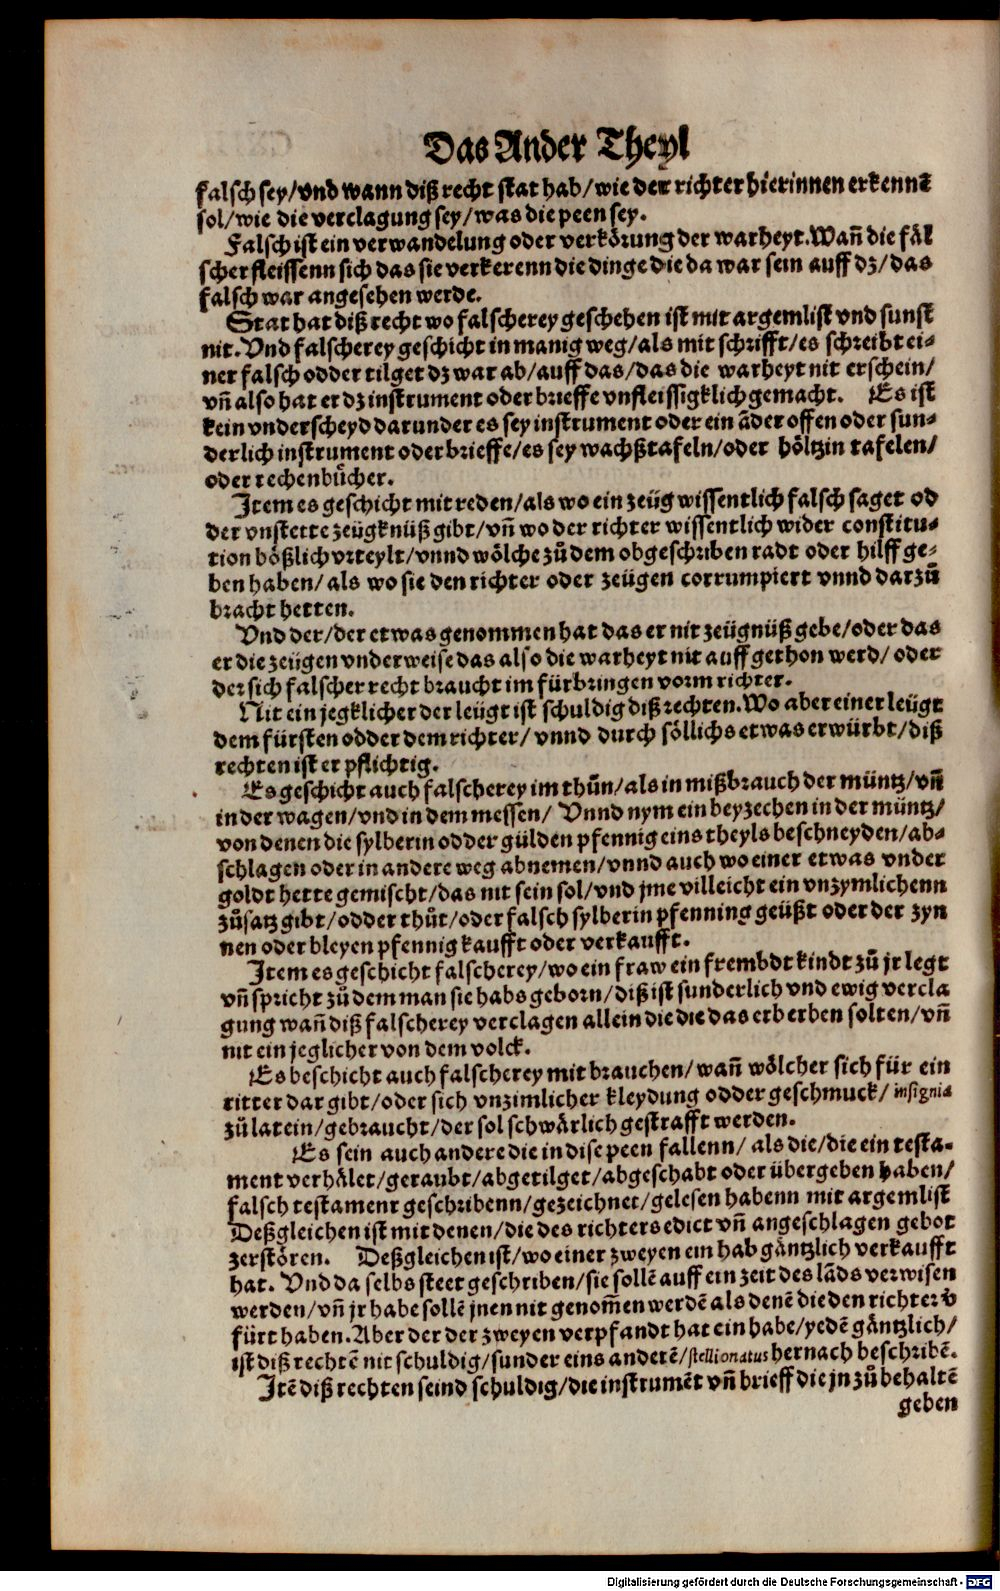 Das Ander Theyl
falsch sey/vnd wann diß recht stat hab/wie der richter hierinnen erkennē
sol/wie die verclagung sey/was die peen sey.
Falsch ist ein verwandelung oder verkörung der warheyt. Wañ die fäl
scher fleissenn sich das sie verkerenn die dinge die da war sein auff dz/das
falsch war angesehen werde.
Stat hat diß recht wo falscherey geschehen ist mit argemlist vnd sunst
nit. Vnd falscherey geschicht in manig weg/als mit schrifft/es schreibt ei-
ner falsch odder tilget dz war ab/auff das/das die warheyt nit erschein/
vñ also hat er dz instrument oder brieffe vnfleissigklich gemacht. Es ist
kein vnderscheyd darunder es sey instrument oder ein āder offen oder sun-
derlich instrument oder brieffe/es sey wachßtafeln/oder höltzin tafelen/
oder rechenbücher.
Item es geschicht mit reden/als wo ein zeüg wissentlich falsch saget od
der vnstette zeügknüß gibt/vñ wo der richter wissentlich wider constitu-
tion bößlich vrteylt/vnnd wölche zů dem obgeschriben radt oder hilff ge-
ben haben/als wo sie den richter oder zeügen corrumpiert vnnd darzů
bracht hetten.
Vnd der/der etwas genommen hat das er nit zeügnüß gebe/oder das
er die zeügen vnderweise das also die warheyt nit auff gethon werd/oder
der sich falscher recht braucht im fürbringen vorm richter.
Nit ein jegklicher der leügt ist schuldig diß rechten. Wo aber einer leügt
dem fürsten odder dem richter/vnnd durch söllichs etwas erwürbt/diß
rechten ist er pflichtig.
Es geschicht auch falscherey im thůn/als in mißbrauch der müntz/vñ
in der wagen/vnd in dem messen/Vnnd nym ein beyzechen in der müntz/
von denen die sylberin odder gülden pfennig eins theyls beschneyden/ab-
schlagen oder in andere weg abnemen/vnnd auch wo einer etwas vnder
goldt hette gemischt/das nit sein sol/vnd jme villeicht ein vnzymlichenn
zůsatz gibt/odder thůt/oder falsch sylberin pfenning geüßt oder der zyn
nen oder bleyen pfennig kaufft oder verkaufft.
Item es geschicht falscherey/wo ein fraw ein frembdt kindt zů jr legt
vñ spricht zů dem man sie habs geborn/diß ist sunderlich vnd ewig vercla
gung wañ diß falscherey verclagen allein die die das erb erben solten/vñ
nit ein jeglicher von dem volck.
Es beschicht auch falscherey mit brauchen/wañ wölcher sich für ein
ritter dar gibt/oder sich vnzimlicher kleydung odder geschmuck/insignia
zů latein/gebraucht/der sol schwärlich gestrafft werden.
Es sein auch andere die in dise peen fallenn/als die/die ein testa-
ment verhälet/geraubt/abgetilget/abgeschabt oder übergeben haben/
falsch testament geschribenn/gezeichnet/gelesen habenn mit argemlist
Deßgleichen ist mit denen/die des richters edict vñ angeschlagen gebot
zerstören. Deßgleichen ist/wo einer zweyen ein hab gäntzlich verkaufft
hat. Vnd da selbs steet geschriben/sie sollē auff ein zeit des lāds verwisen
werden/vñ jr habe sollē jnen nit genom̄en werdē als denē die den richter v̄
fürt haben. Aber der der zweyen verpfandt hat ein habe/yedē gäntzlich/
ist diß rechtē nit schuldig/sunder eins anderē/stellionatus hernach beschribē.
Itē diß rechten seind schuldig/die instrumēt vñ brieff die jn zů behaltē
geben
Digitalisierung gefördert durch die Deutsche Forschungsgemeinschaft - DFG